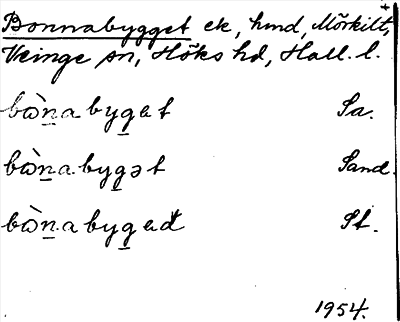 Bonnabygget ek, hmd, Mörkilt,
Veinge sn, Höks hd, Hall. l.
bὼn̲abyg̲et Sa.
bὼn̲abyg̲ət Sand.
bὼn̲abyg̲et St.
1954.